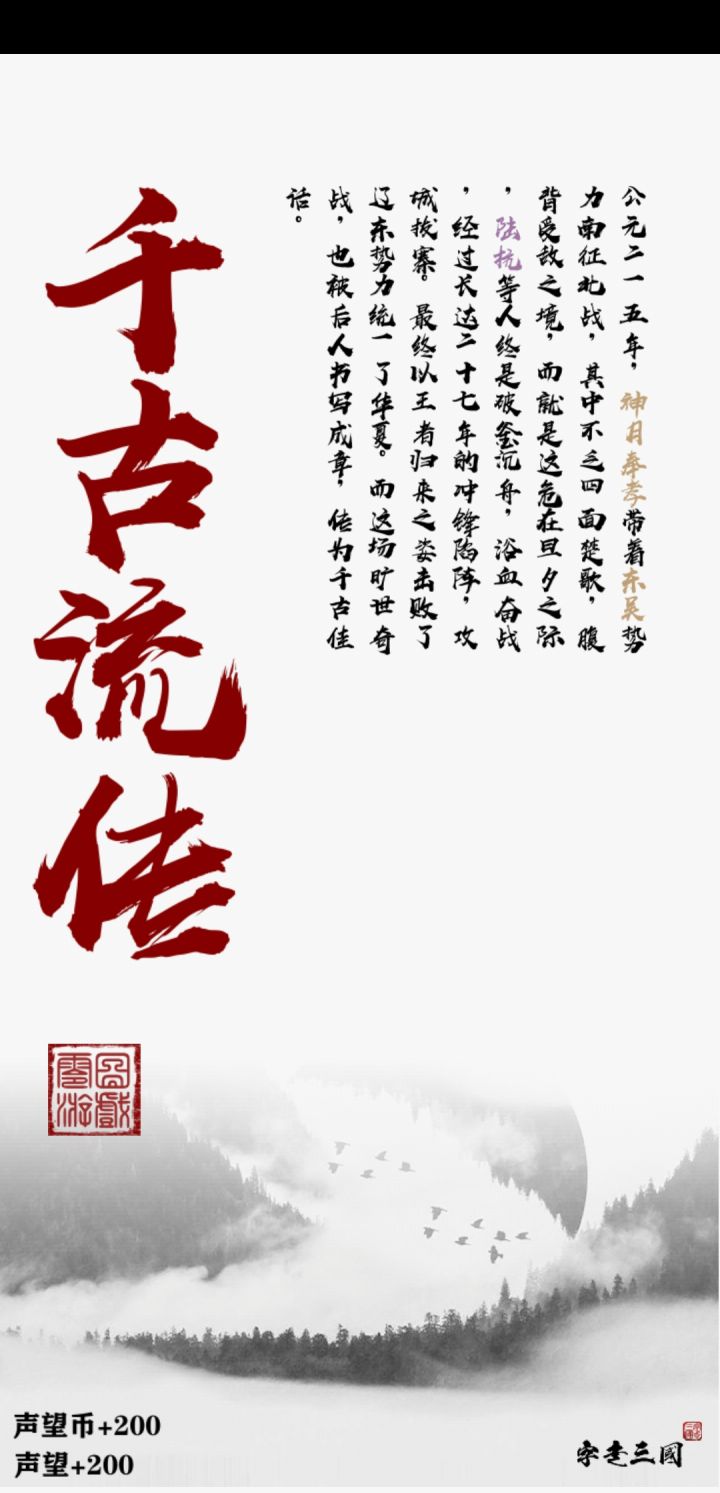 公元二一五年，神月奉孝带着东吴势
力南征北战，其中不乏四面楚歌，腹
背受敌之境，而就是这危在旦夕之际
，陆抗等人终是破釜沉舟，浴血奋战
，经过长达二十七年的冲锋陷阵，攻
城拔寨。最终以王者归来之姿击败了
辽东势力统一了华夏。而这场旷世奇
战，也被后人书写成章，传为千古佳
话。
千古流传
雲圖
游戲
声望币+200
声望+200
字走三國